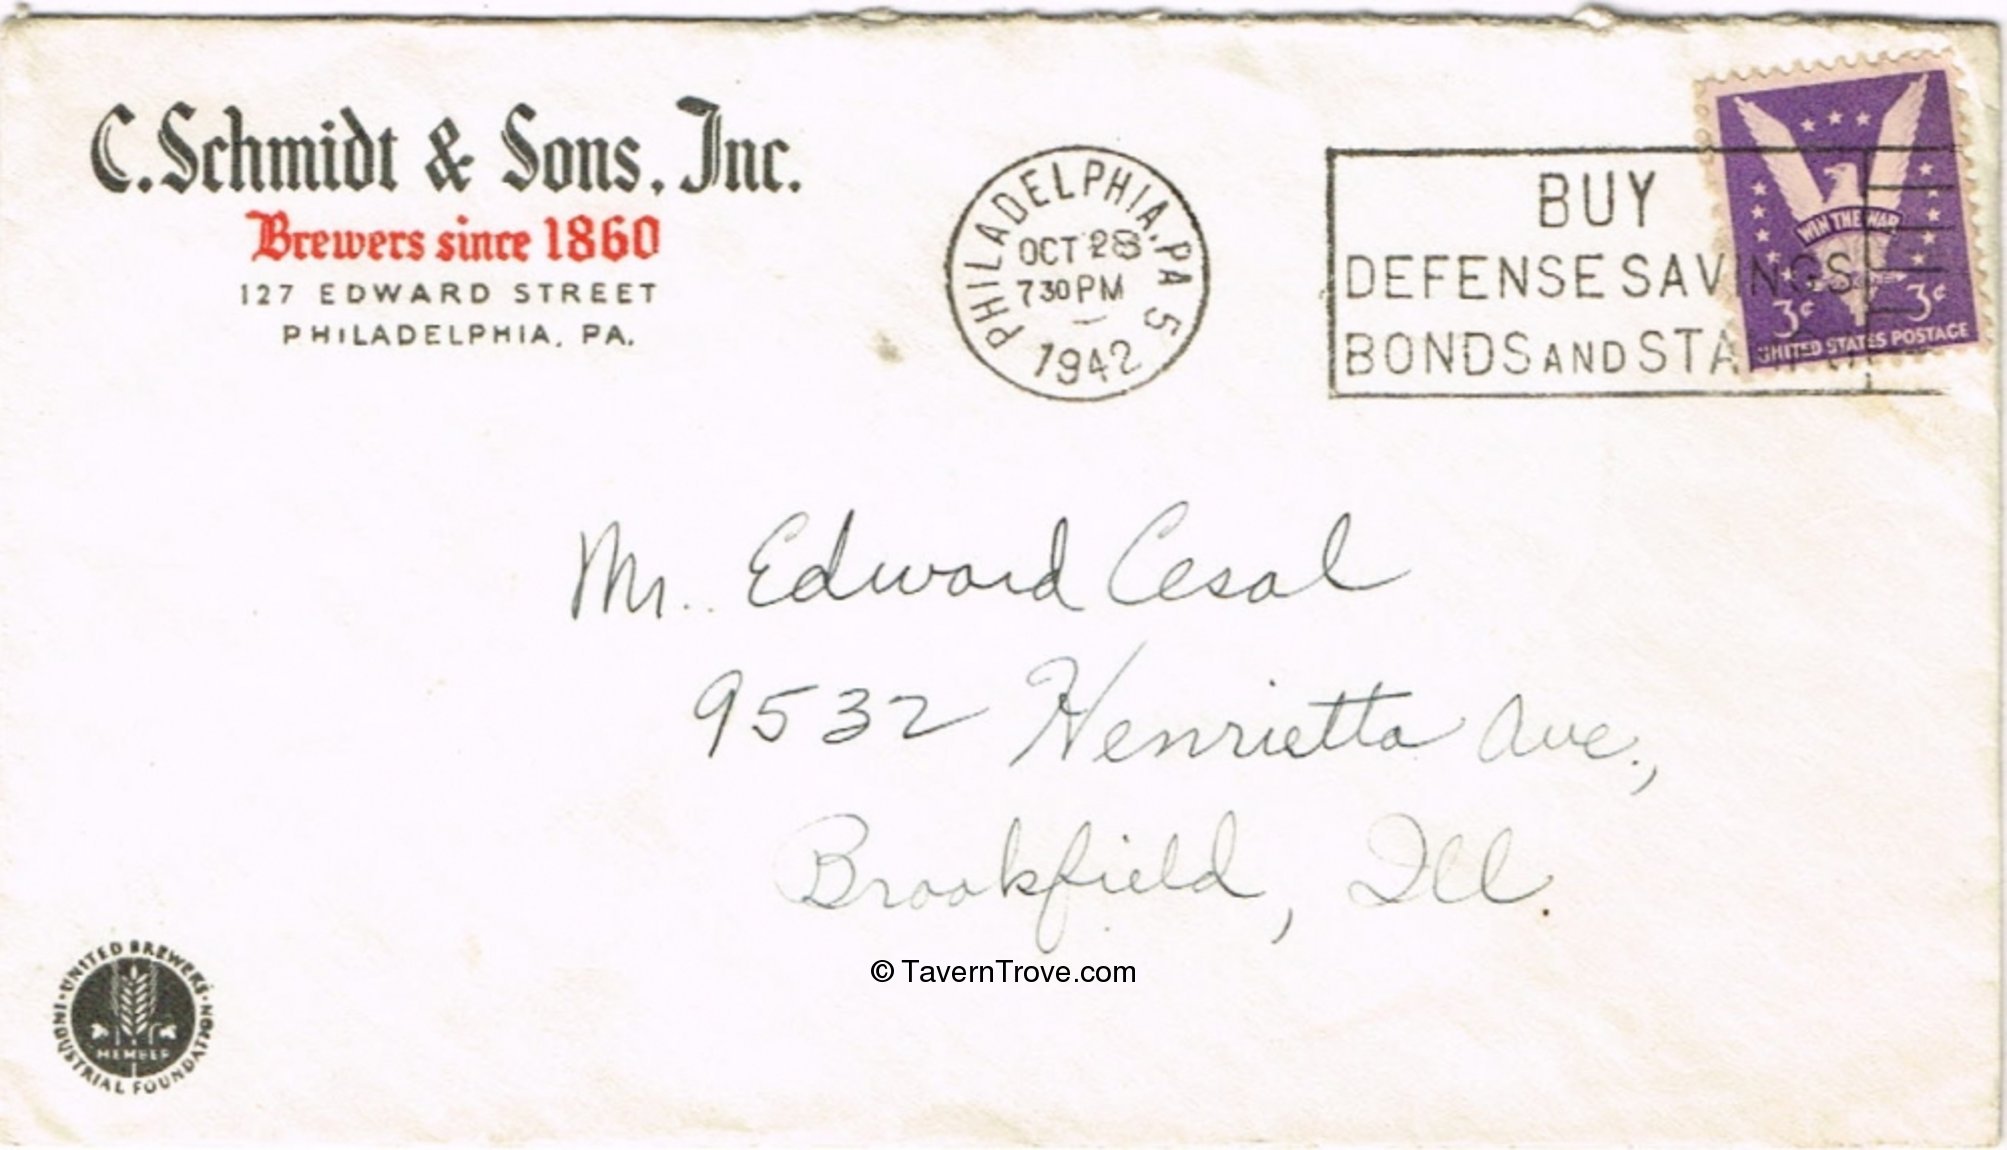 C. Schmidt & Sons, Inc.
Brewers since 1860
127 EDWARD STREET
PHILADELPHIA, PA.
PHILADELPHIA, PA 5
OCT 28
730 PM
1942
BUY
DEFENSE SAVINGS
BONDS AND STAMPS
WIN THE WAR
3¢ 3¢
UNITED STATES POSTAGE
Mr. Edward Cesal
9532 Henrietta Ave.,
Brookfield, Ill.
© TavernTrove.com
UNITED BREWERS INDUSTRIAL FOUNDATION
MEMBER